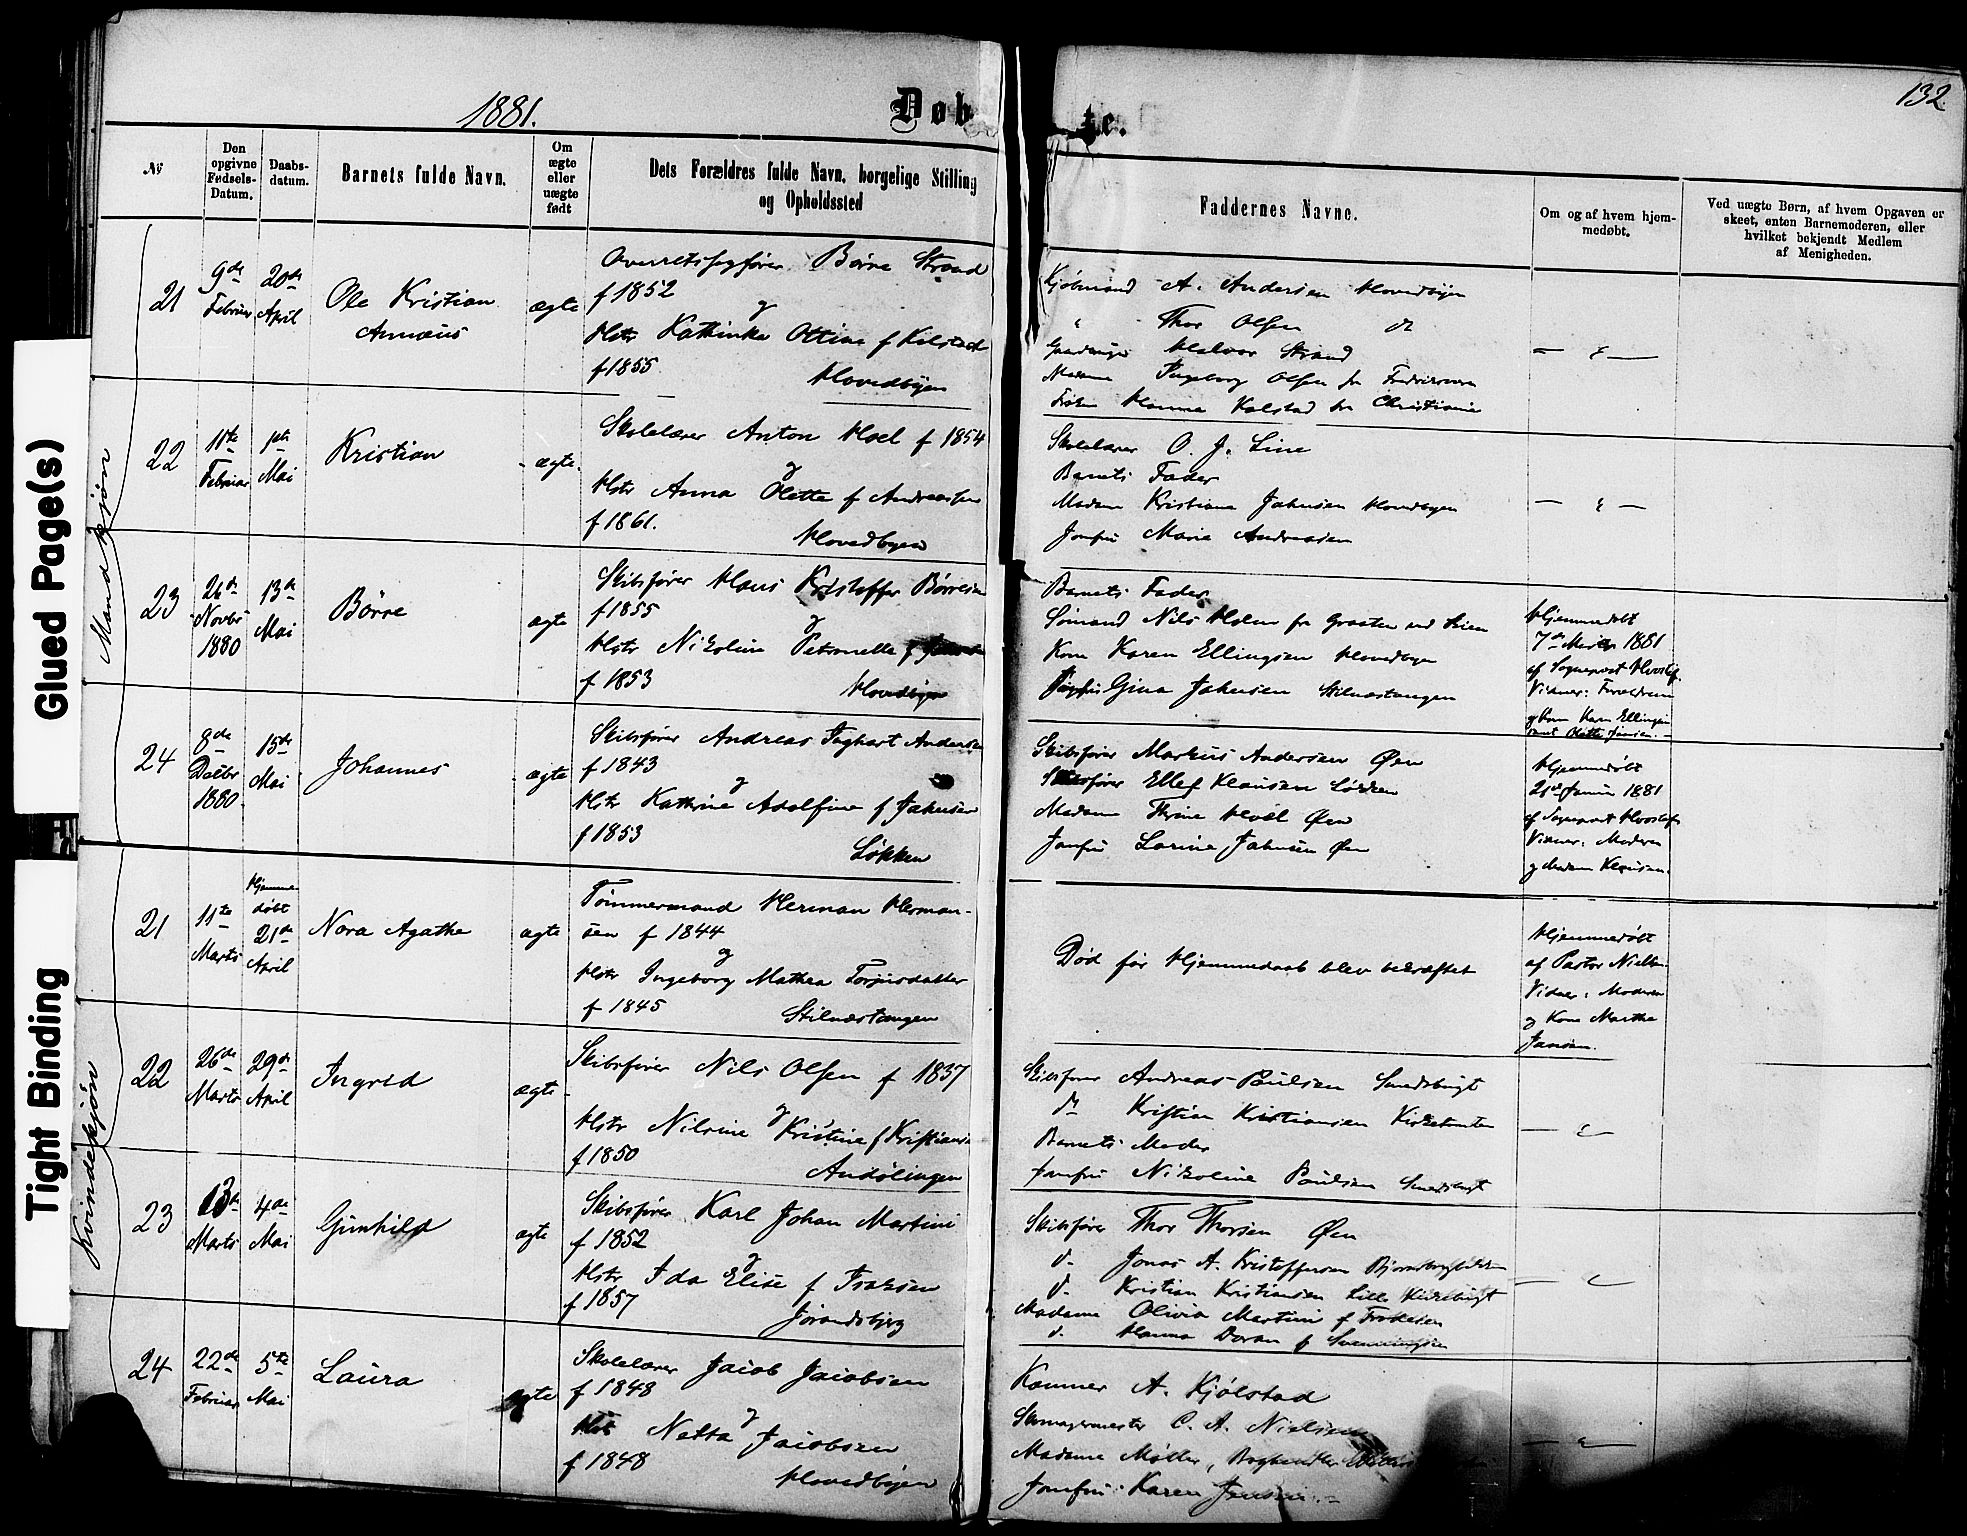 1881.
Døbte.
132.
Glued Page(s)
Tight Binding
№
Den opgivne Fødsels-Datum.
Daabs-datum.
Barnets fulde Navn.
Om ægte eller uægte født
Dets Forældres fulde Navn, borgelige Stilling
og Opholdssted
Faddernes Navne.
Om og af hvem hjem-
medøbt.
Ved uægte Børn, af hvem Opgaven er
skeet, enten Barnemoderen, eller
hvilket bekjendt Medlem
af Menigheden.
Mandkjøn
21
9de Februar
20de April
Ole Kristian
Annæus
ægte
Overretssagfører Børre Strand
f 1852
og
Hstr Kathinka Ottine f
f 1855
Hovedbyen
Kjøbmand A. Andersen Hovedbyen
" Thor Olsen do
Halvor Strand
Madame Ingeborg Olsen fra
Frøken Hanna Kolstad fra Christiania
22
11te Februar
1ste Mai
Kristian
ægte
Skolelærer Anton Hoel f 1854
og
Hstr Anna Olette f Andreassen
f 1861.
Hovedbyen
Skolelærer O. J. Line
Barnets Fader
Madam Kristiane Jahnsen Hovedbyen
Jomfru Marie Andreasen
23
26de Novbr 1880
13de Mai
Børre
ægte
Skibsfører Hans Kristoffer Børresen
f 1855
og
Hstr Nikoline Petronelle f
f 1853
Hovedbyen
Barnets Fader
Sømand Nils Holm fra Graaten ved Skien
Kone Karen Ellingsen Hovedbyen
Jomfru Gina Jahnsen Stilnæstangen
Hjemmedøbt
7de Marts 1881
af Sogneprest
Vidner: Forældrene
og Kone Karen Ellingsen
samt Olette Jensen.
24
8de Decbr 1880.
15de Mai
Johannes
ægte
Skibsfører Andreas Inghart Andersen
f 1843
og
Hstr Kathrine Adolfine f Jahnsen
f 1853
Løkken
Skibsfører Markus Andersen Øen
Skibsfører Ellef Klausen Løkken
Madame Thrine Hoel Øen
Jomfru Larine Jahnsen Øen
Hjemmedøbt
21de Januar 1881
af Sogneprest
Vidner: Moderen
og Madam Klausen.
Kvindekjøn
21
11te Marts
Hjemmedøbt
21de April
Nora Agathe
ægte
Tømmermand Herman Herman-
sen f 1844
og
Hstr Ingeborg Mathea Torjusdatter
f 1845
Stilnæstangen
Død før Hjemmedaab blev bekræftet
Hjemmedøbt
af Pastor
Vidner: Moderen
og Kone Marthe
Jansen.
22
26de Marts
29de April
Ingrid
ægte
Skibsfører Nils Olsen f 1837
og
Hstr Nilsine Kristine f Kristiansen
f 1850
Andølingen
Skibsfører Andreas Paulsen Smedsbugt
do Kristian Kristiansen
Barnets Moder
Jomfru Nikoline Paulsen Smedsbugt
23
13de Marts
4de Mai
Gunhild
ægte
Skibsfører Karl Johan Martini
f 1852
og
Hstr Ida Elise f Isaksen
f 1857
Jørandsbjerg
Skibsfører Thor Thorsen Øen
d. Jonas A. Kristoffersen
d. Kristian Kristiansen Lille Kirkebugt
Madame Olivia Martini f
d. Hanna Doran f
24
22de Februar
5te Mai
Laura
ægte
Skolelærer Jacob Jacobsen
f 1848
og
Hstr Netta Jacobsen
f 1848
Hovedbyen
A. Kjølstad
Skomagermester C. A. Nielsen
Madame Møller, Boghandler
Jomfru Karen Jensine.